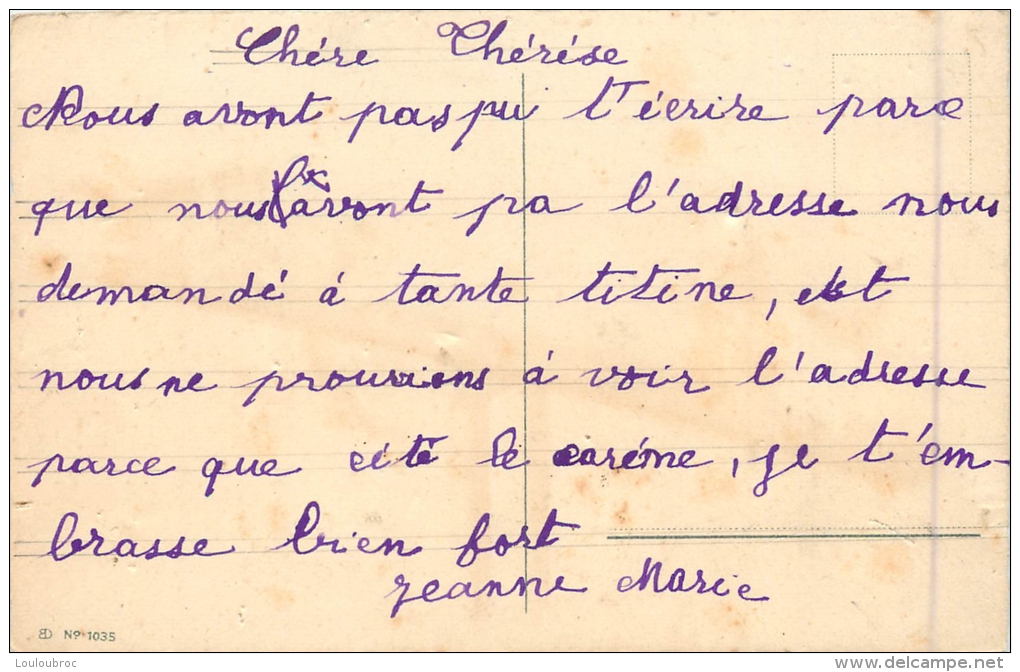 Chére Thérése
Nous avont pas pu t'écrire parce
que nous avont pa l'adresse nous
demandé á tante titine, et
nous ne prouvions á voir l'adresse
parce que cété le caréme, je t'em-
brasse bien fort
jeanne Marie
BD Nº 1035
Louloubroc
www.delcampe.net